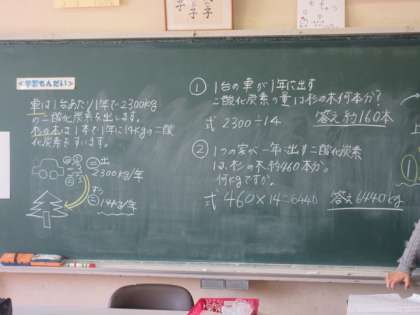 <学習もんだい>
車は1台あたり1年で2300kg
の二酸化炭素を出します。
杉の木は1本で1年に14kgの二酸
化炭素をすいます。
出
2300kg/年
14kg/年
① 1台の車が1年に出す
二酸化炭素の量は杉の木何本分?
式 2300÷14 答え 約160本
② 1つの家が一年に出す二酸化炭素
は、杉の木約460本分。
何kgですか。
式 460×14=6440 答え 6440kg
①